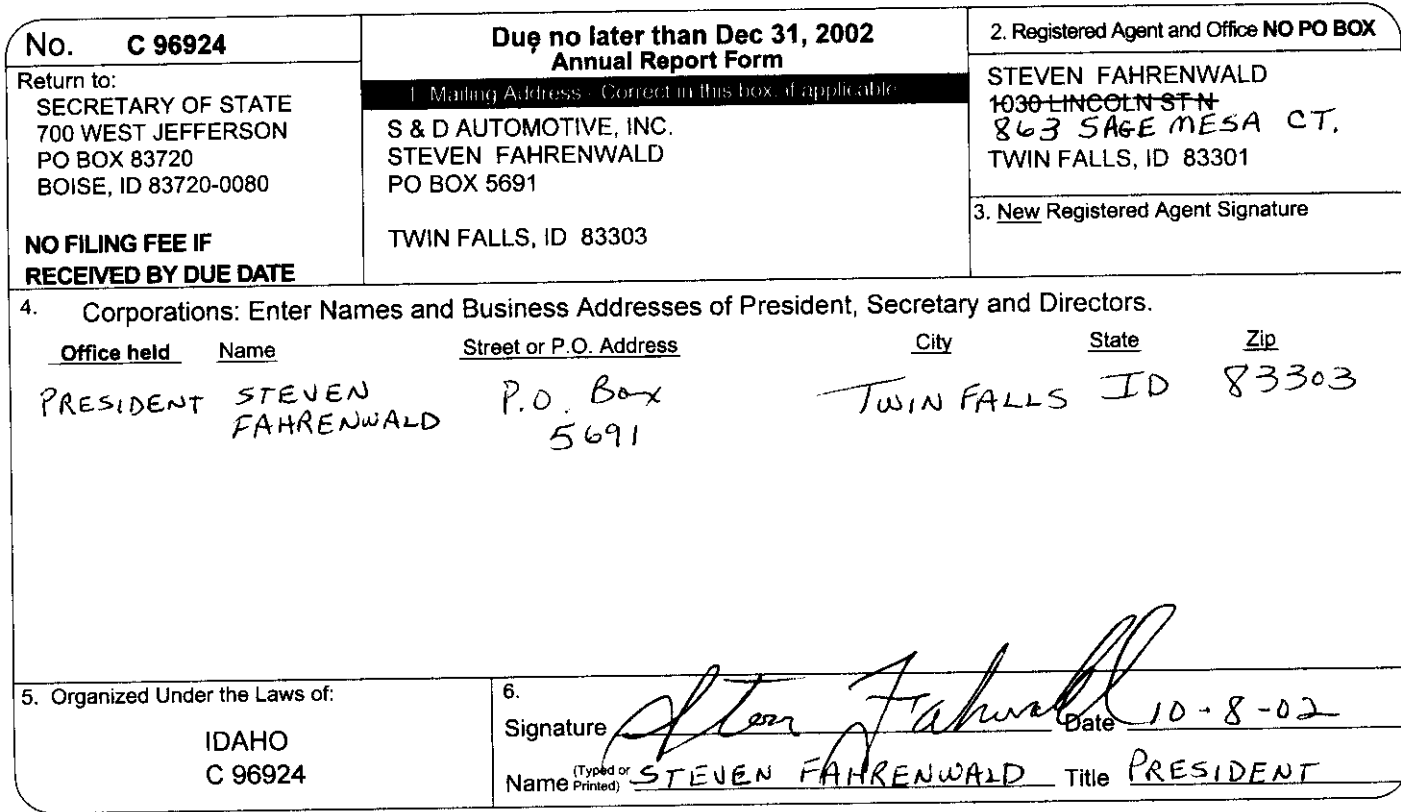 No. C 96924
Return to:
SECRETARY OF STATE
700 WEST JEFFERSON
PO BOX 83720
BOISE, ID 83720-0080
NO FILING FEE IF
RECEIVED BY DUE DATE
Due no later than Dec 31, 2002
Annual Report Form
1. Mailing Address - Correct in this box, if applicable
S & D AUTOMOTIVE, INC.
STEVEN FAHRENWALD
PO BOX 5691
TWIN FALLS, ID 83303
2. Registered Agent and Office NO PO BOX
STEVEN FAHRENWALD
1030 LINCOLN ST N
863 SAGE MESA CT.
TWIN FALLS, ID 83301
3. New Registered Agent Signature
4. Corporations: Enter Names and Business Addresses of President, Secretary and Directors.
Office held Name Street or P.O. Address City State Zip
PRESIDENT STEVEN P.O. Box TWIN FALLS ID 83303
FAHRENWALD 5691
5. Organized Under the Laws of:
IDAHO
C 96924
6.
Signature Steven Fahrenwald Date 10-8-02
Name (Typed or Printed) STEVEN FAHRENWALD Title PRESIDENT